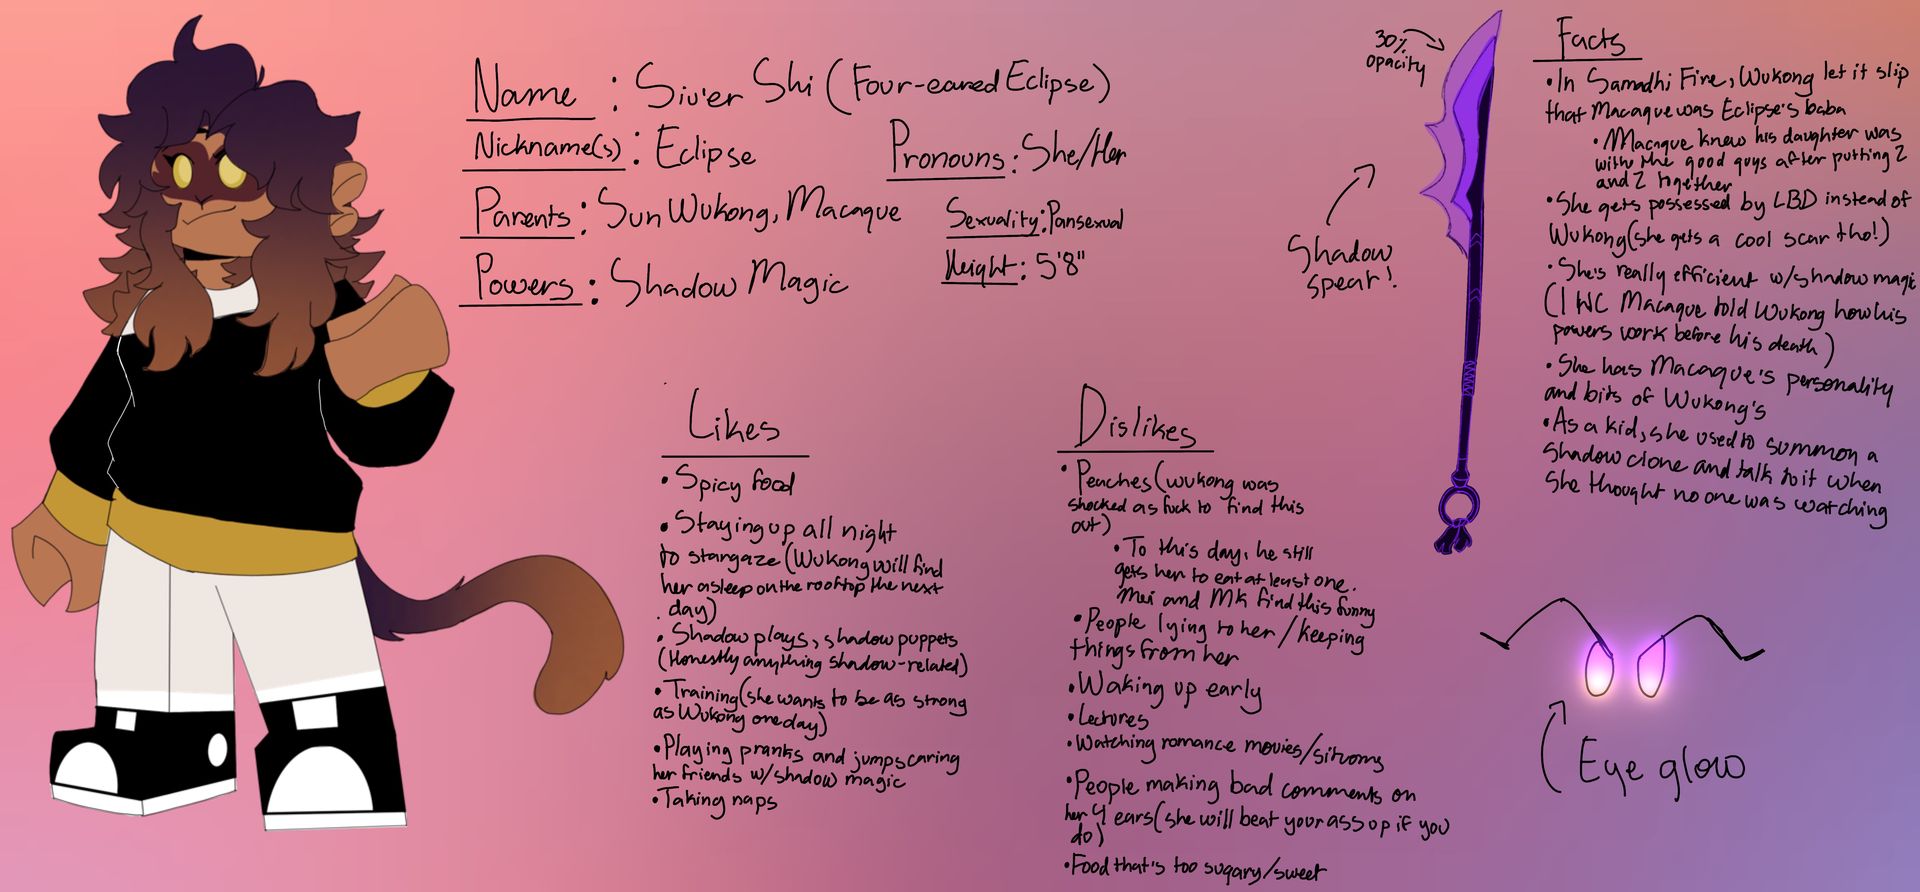 Name : Siu'er Shi (Four-eared Eclipse)
Nickname(s) : Eclipse
Pronouns : She/Her
Parents : Sun Wukong, Macaque
Sexuality : Pansexual
Powers : Shadow Magic
Height : 5'8"
Likes
• Spicy food
• Staying up all night
to stargaze (Wukong will find
her asleep on the rooftop the next
day)
• Shadow plays, shadow puppets
(Honestly anything shadow-related)
• Training (she wants to be as strong
as Wukong one day)
• Playing pranks and jumpscaring
her friends w/ shadow magic
• Taking naps
Dislikes
• Peaches (wukong was
shocked as fuck to find this
out)
• To this day, he still
gets her to eat at least one.
Mei and MK find this funny
• People lying to her/keeping
things from her
• Waking up early
• Lectures
• Watching romance movies/sitcoms
• People making bad comments on
her 4 ears (she will beat your ass up if you
do)
• Food that's too sugary/sweet
30%
opacity
Shadow
spear!
Facts
• In Samadhi Fire, Wukong let it slip
that Macaque was Eclipse's baba
• Macaque knew his daughter was
with the good guys after putting 2
and 2 together
• She gets possessed by LBD instead of
Wukong (she gets a cool scar tho!)
• She's really efficient w/ shadow magic
(I HC Macaque told Wukong how his
powers work before his death)
• She has Macaque's personality
and bits of Wukong's
• As a kid, she used to summon a
shadow clone and talk to it when
she thought no one was watching
Eye glow